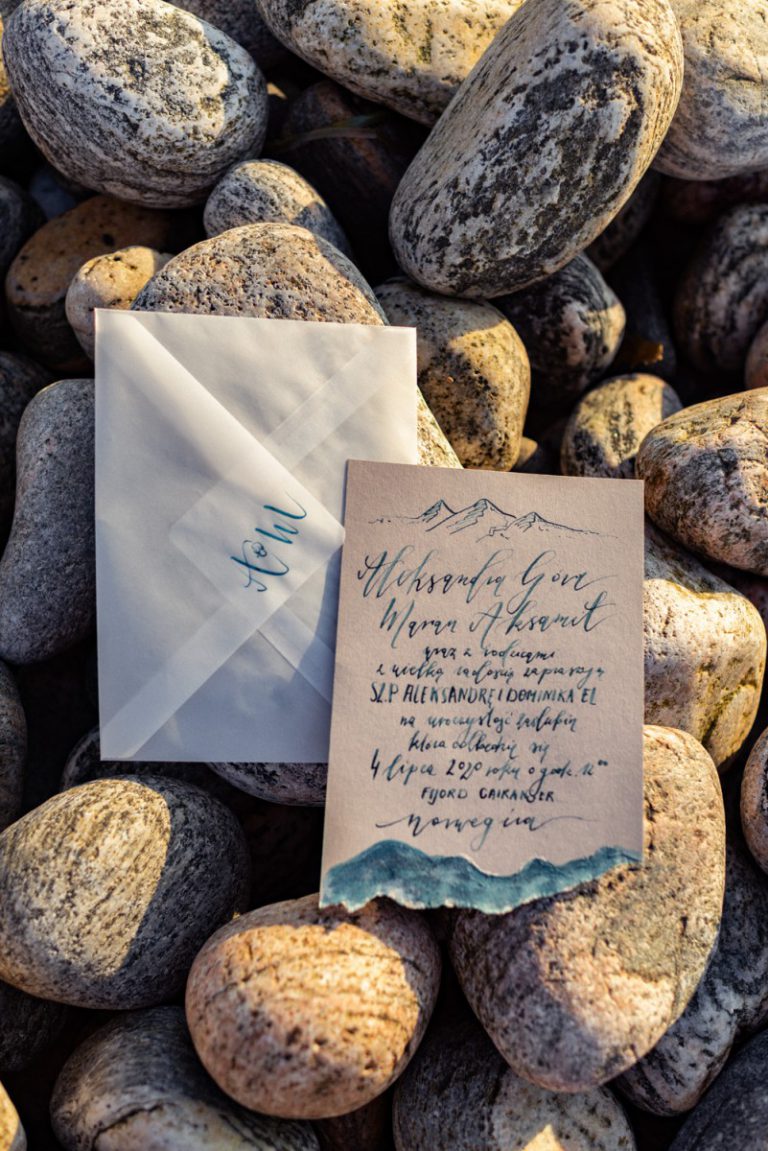 Aleksandra Góra
Maran Aksamit
wraz z rodzicami
z wielką radością zapraszają
SZ.P. ALEKSANDRĘ I DOMINIKA EL
na uroczystość zaślubin
która odbędzie się
4 lipca 2020 roku o godz. 12⁰⁰
FIJORD GAIRANGER
Norwegia